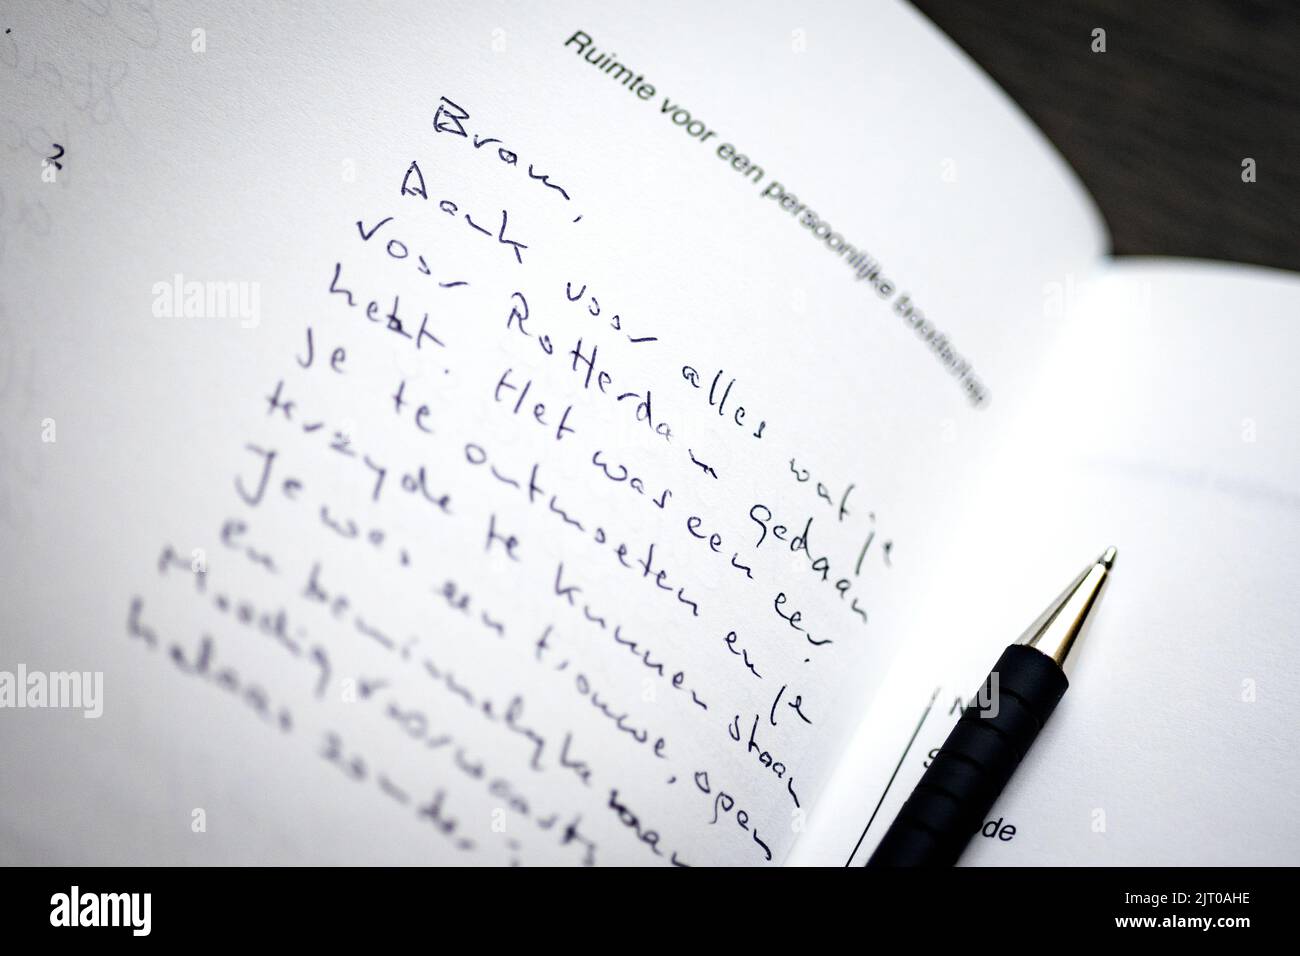 Ruimte voor een persoonlijke boodschap
Bram,
Dank voor alles wat je
voor Rotterdam gedaan
hebt. Het was een eer
je te ontmoeten en je
terzyde te kunnen staan
Je was een trouwe, open
en beminnelyke man
Moedig voorwaarts
helaas zonder
2
ode
alamy
Image ID: 2JT0AHE
www.alamy.com